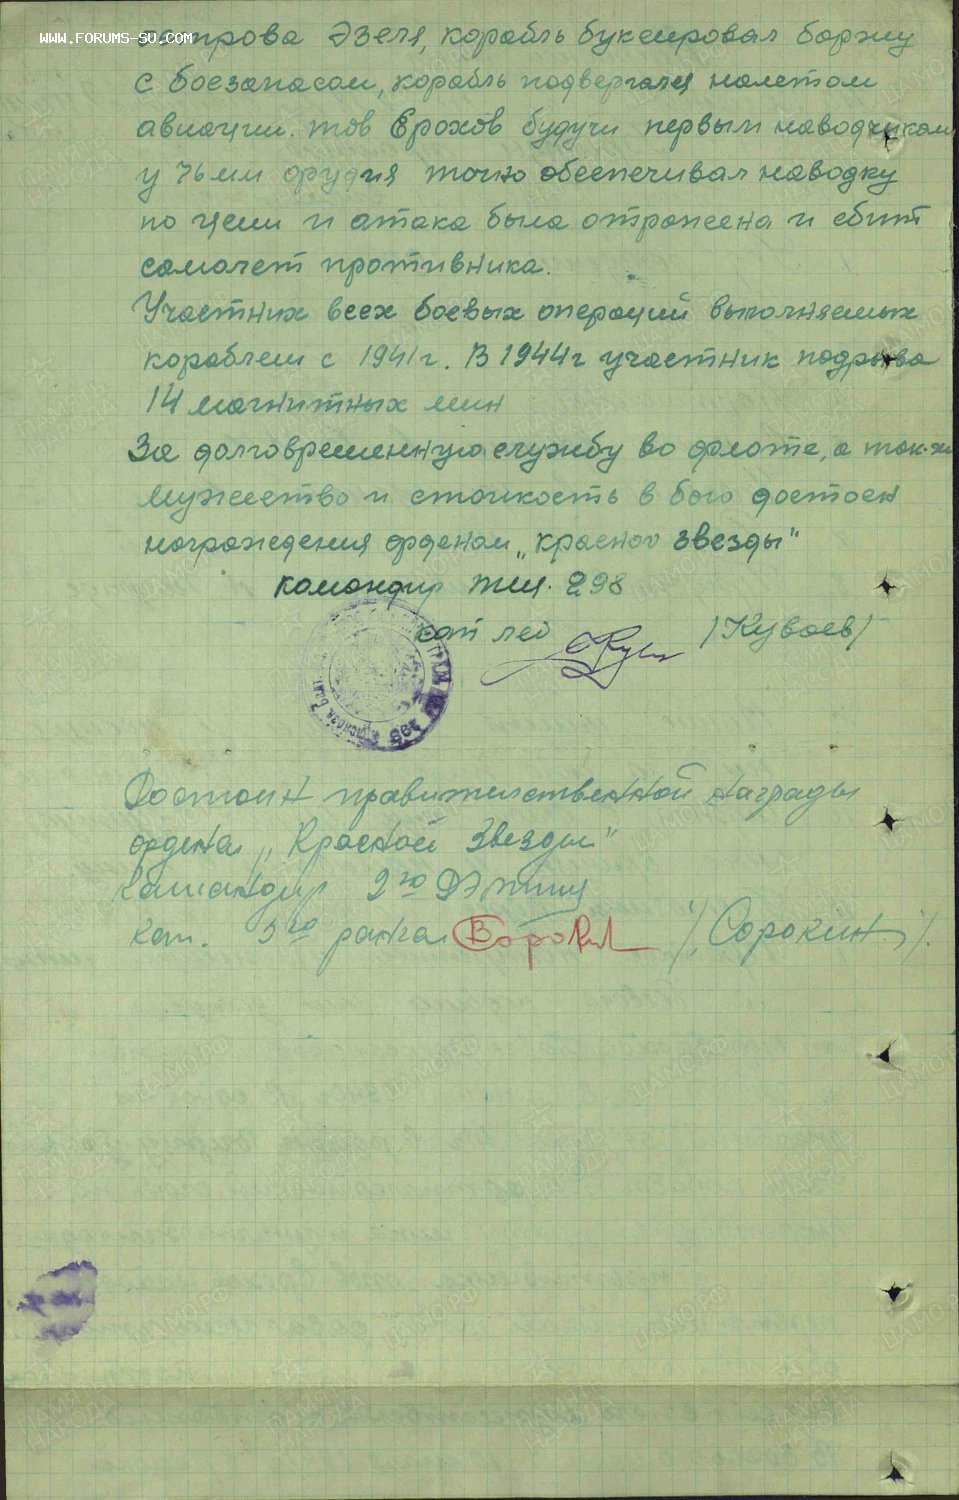 WWW.FORUMS-SU.COM
острова Эзеля, корабль буксировал баржу
с боезапасом, корабль подвергался налетом
авиации. тов Ерохов будучи первым наводчиком
у 76 мм орудия точно обеспечивал наводку
по цели и атака была отражена и сбит
самолет противника.
Участник всех боевых операций выполняемых
кораблем с 1941 г. В 1944 г участник подрыва
14 магнитных мин
За долговременную службу во флоте, а так-же
мужество и стойкость в бою достоен
награждения орденом „красной звезды"
командир тщ. 298
кап лей /Куваев/
Достоин правительственной награды
ордена „Красной Звезды"
Командир 2го ДЭТЩ
Кап. 3го ранга /Сорокин./.